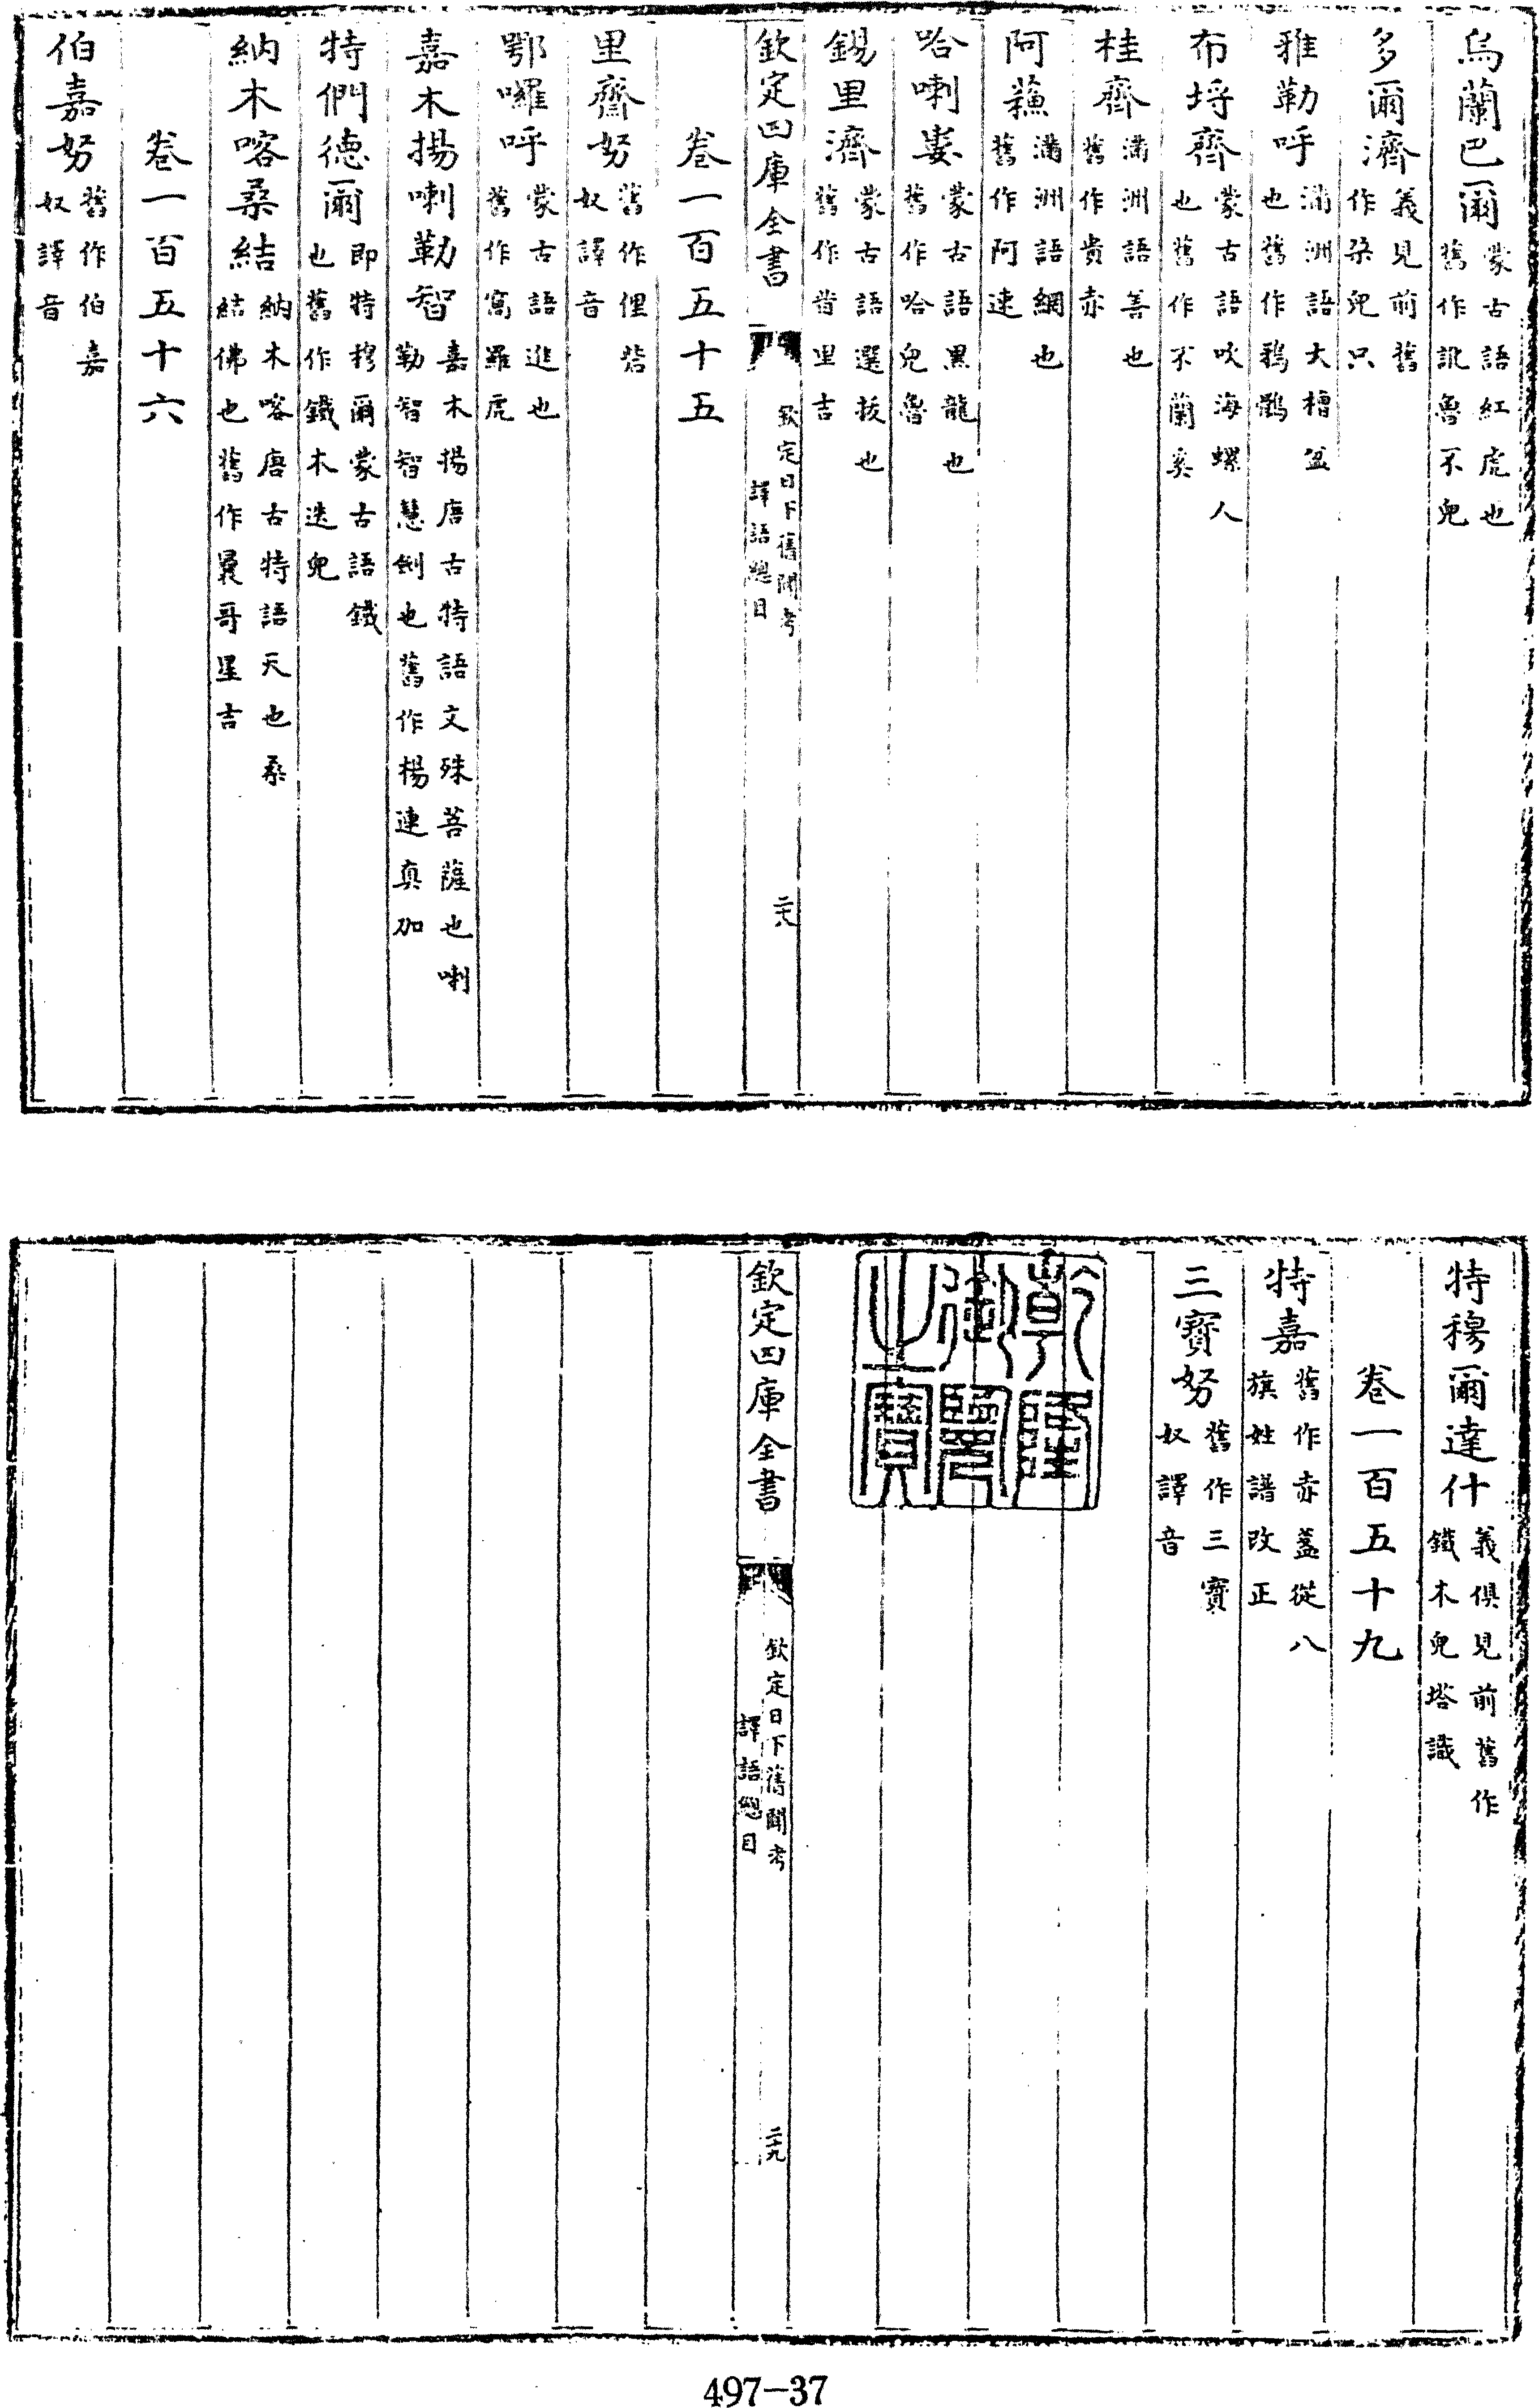 烏蘭巴爾蒙古語紅虎也舊作訛魯不兒
多爾濟義見前舊作朶兒只
雅勒呼滿洲語大槽盆也舊作鴉鶻
布埒齊蒙古語吹海螺人也舊作不蘭奚
桂齊滿洲語善也舊作貴赤
阿蘓滿洲語網也舊作阿速
哈喇婁蒙古語黑龍也舊作哈兒魯
錫里濟蒙古語選拔也舊作昔里吉
欽定四庫全書 欽定日下舊聞考譯語總目 二十八
卷一百五十五
里齊努舊作俚砦奴譯音
鄂囉呼蒙古語進也舊作寓羅虎
嘉木揚喇勒智嘉木揚唐古特語文殊菩薩也喇勒智智慧劍也舊作楊連真加
特們德爾即特穆爾蒙古語鐵也舊作鐵木迭兒
納木喀桑結納木喀唐古特語天也桑結佛也舊作曩哥星吉
卷一百五十六
伯嘉努舊作伯嘉奴譯音
特穆爾達什義俱見前舊作鐵木兒塔識
卷一百五十九
特嘉舊作赤盞從八旗姓譜改正
三寶努舊作三寶奴譯音
乾隆御覽之寶
欽定四庫全書 欽定日下舊聞考譯語總目 二十九
497-37